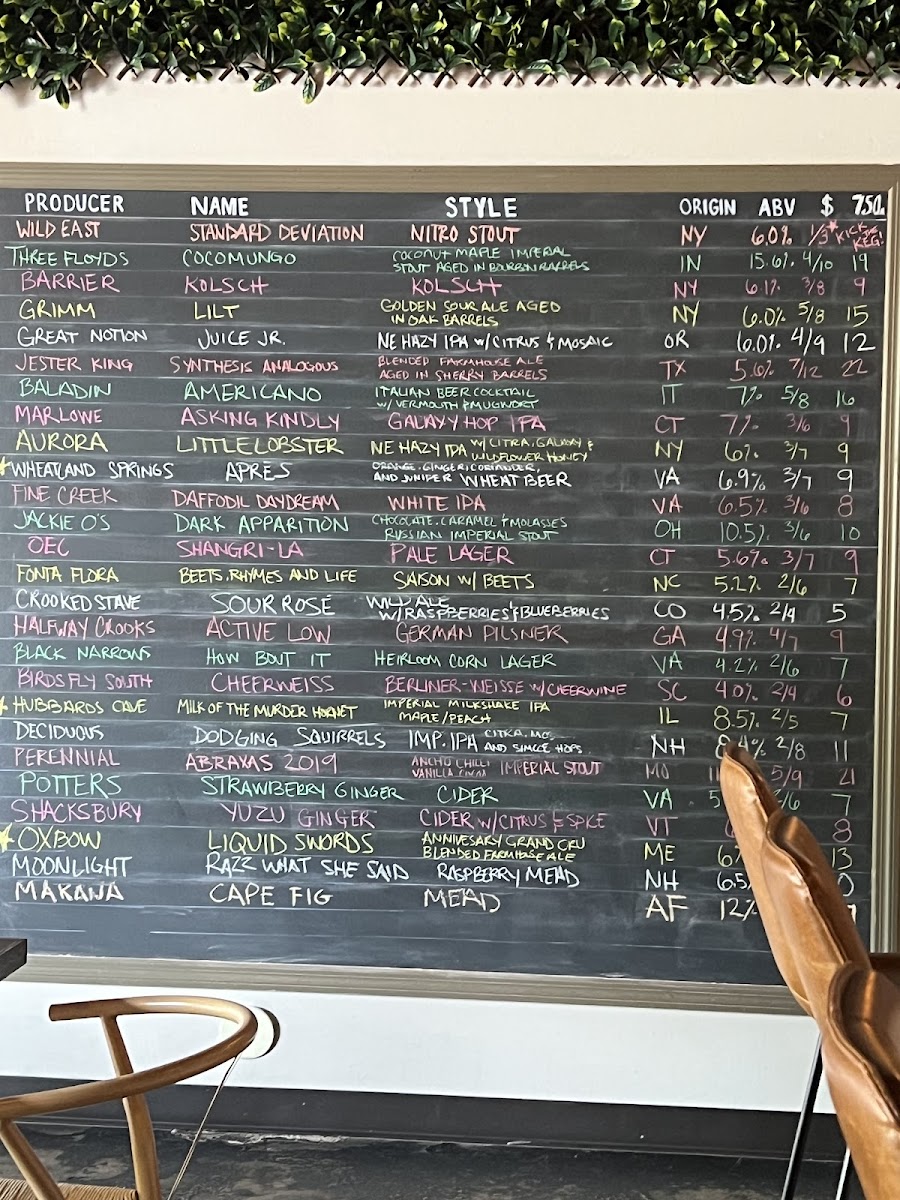 PRODUCER NAME STYLE ORIGIN ABV $ 750.
WILD EAST STANDARD DEVIATION NITRO STOUT NY 6.0% 1/3* *KICK KEG!
THREE FLOYDS COCOMUNGO COCONUT MAPLE IMPERIAL STOUT AGED IN BOURBON BARRELS IN 15.6% 4/10 19
BARRIER KOLSCH KOLSCH NY 6.1% 3/8 9
GRIMM LILT GOLDEN SOUR ALE AGED IN OAK BARRELS NY 6.0% 5/8 15
GREAT NOTION JUICE JR. NE HAZY IPA W/ CITRUS & MOSAIC OR 6.0% 4/9 12
JESTER KING SYNTHESIS ANALOGOUS BLENDED FARMHOUSE ALE AGED IN SHERRY BARRELS TX 5.6% 7/12 22
BALADIN AMERICANO ITALIAN BEER COCKTAIL W/ VERMOUTH & MUGWORT IT 7% 5/8 16
MARLOWE ASKING KINDLY GALAXY HOP IPA CT 7% 3/6 9
AURORA LITTLE LOBSTER NE HAZY IPA W/ CITRA, GALAXY & WILDFLOWER HONEY NY 6% 3/7 9
*WHEATLAND SPRINGS APRES ORANGE, GINGER, CORIANDER, AND JUNIPER WHEAT BEER VA 6.9% 3/7 9
FINE CREEK DAFFODIL DAYDREAM WHITE IPA VA 6.5% 3/6 8
JACKIE O'S DARK APPARITION CHOCOLATE, CARAMEL & MOLASSES RUSSIAN IMPERIAL STOUT OH 10.5% 3/6 10
OEC SHANGRI-LA PALE LAGER CT 5.6% 3/7 9
FONTA FLORA BEETS, RHYMES AND LIFE SAISON W/ BEETS NC 5.2% 2/6 7
CROOKED STAVE SOUR ROSÉ WILD ALE W/ RASPBERRIES & BLUEBERRIES CO 4.5% 2/4 5
HALFWAY CROOKS ACTIVE LOW GERMAN PILSNER GA 4.9% 4/7 9
BLACK NARROWS HOW BOUT IT HEIRLOOM CORN LAGER VA 4.2% 2/6 7
BIRDS FLY SOUTH CHEERWEISS BERLINER-WEISSE W/ CHEERWINE SC 4.0% 2/4 6
*HUBBARDS CAVE MILK OF THE MURDER HORNET IMPERIAL MILKSHAKE IPA MAPLE/PEACH IL 8.5% 2/5 7
DECIDUOUS DODGING SQUIRRELS IMP. IPA CITRA, MO, AND SIMCOE HOPS NH 8.4% 2/8 11
PERENNIAL ABRAXAS 2019 ANCHO CHILI VANILLA IMPERIAL STOUT MO 5/9 21
POTTERS STRAWBERRY GINGER CIDER VA 7
SHACKSBURY YUZU GINGER CIDER W/ CITRUS & SPICE VT 8
*OXBOW LIQUID SWORDS ANNIVESARY GRAND CRU BLENDED FARMHOUSE ALE ME 13
MOONLIGHT RAZZ WHAT SHE SAID RASPBERRY MEAD NH
MAKANA CAPE FIG MEAD AF 12%